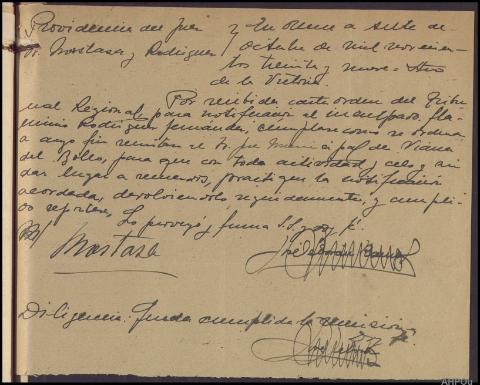 Providencia del Juez
Sr. Mostasa y Rodriguez
y En Orense a siete de
Octubre de mil novecien-
tos treinta y nueve. Año
de la Victoria.
Por recibida carta orden del Tribu
nal Regional para notificacion al inculpado, Fla-
minio Rodriguez Fernandez, cumplase como se ordena
a cuyo fin remitase al Sr. Juez Municipal de Viana
del Bollo, para que con toda actividad, celo y sin
dar lugar a recuerdos, practique la notificación
acordada, devolviendolo seguidamente, y cumpli-
do reportese. Lo proveyó y firma S.S. doy fé.
Mostasa
Diligencia: Queda cumplida la
AHPOu